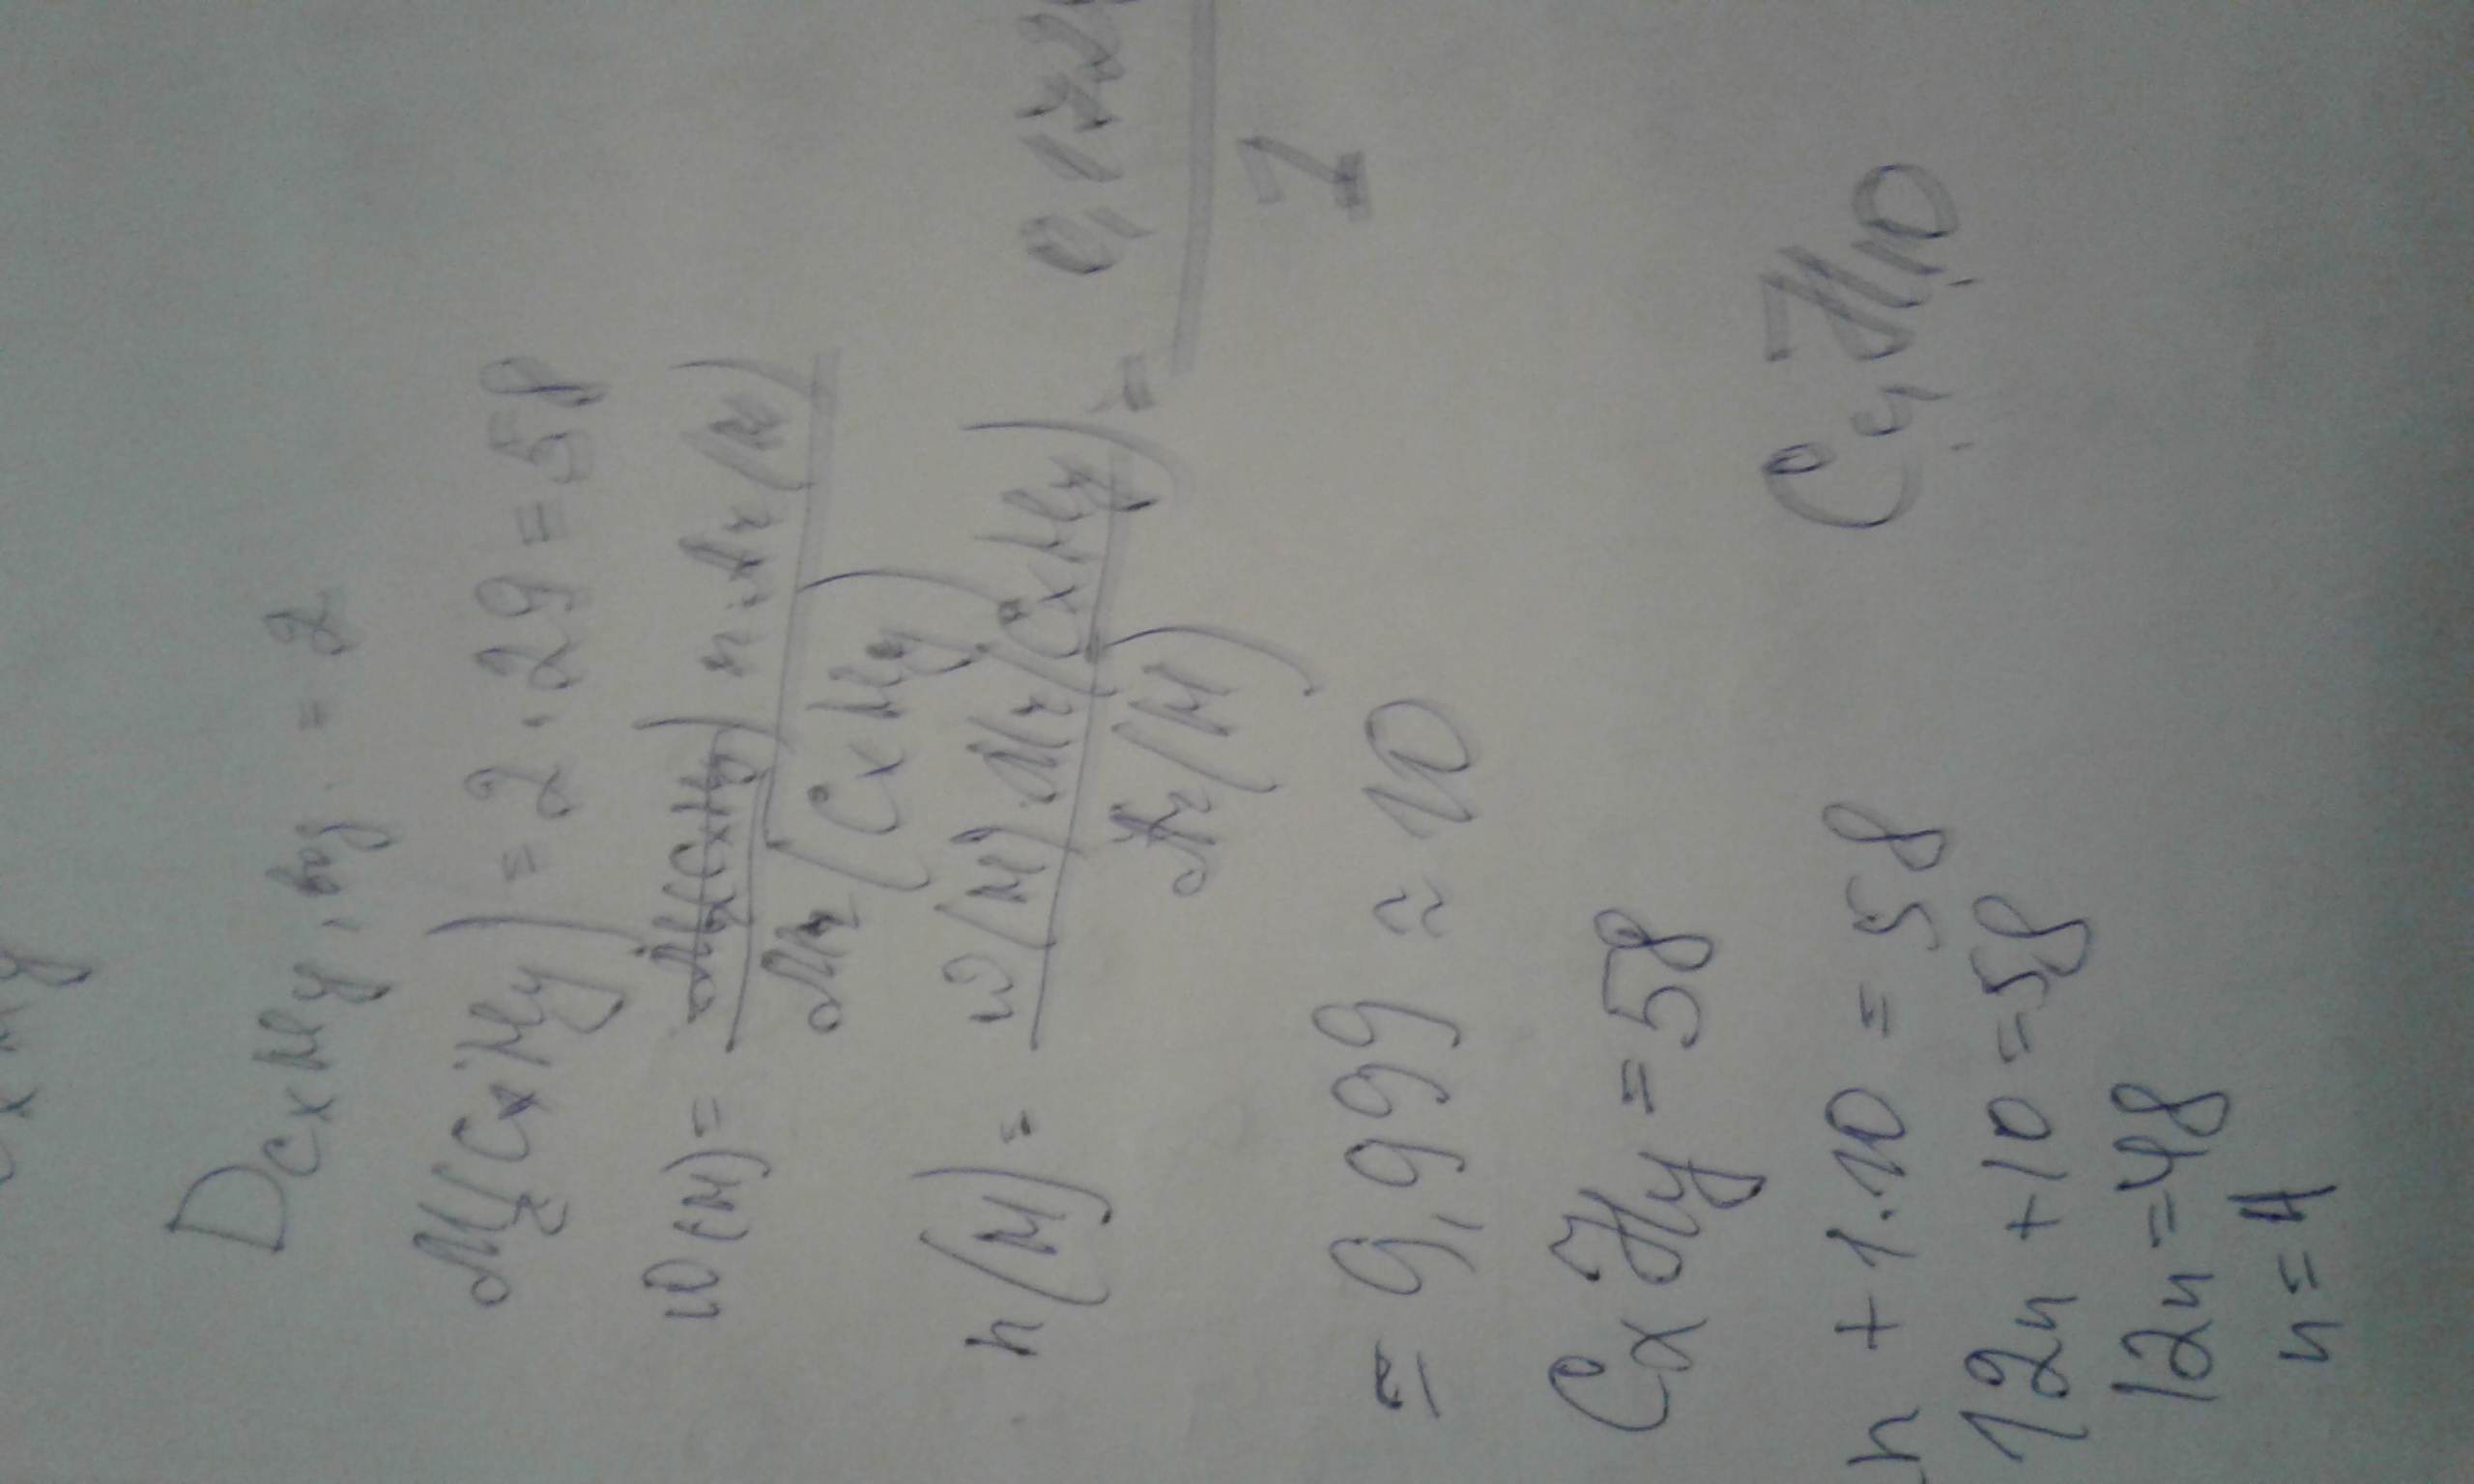 D CxHy, возд. = 2
Mr(CxHy) = 2 · 29 = 58
w(H) = n · Ar(H) / Mr(CxHy)
n(H) = w(H) · Mr(CxHy) / Ar(H) = 0,172 / 1
= 9,999 ≈ 10
CxHy = 58
n + 1 · 10 = 58
12n + 10 = 58
12n = 48
n = 4
C4H10